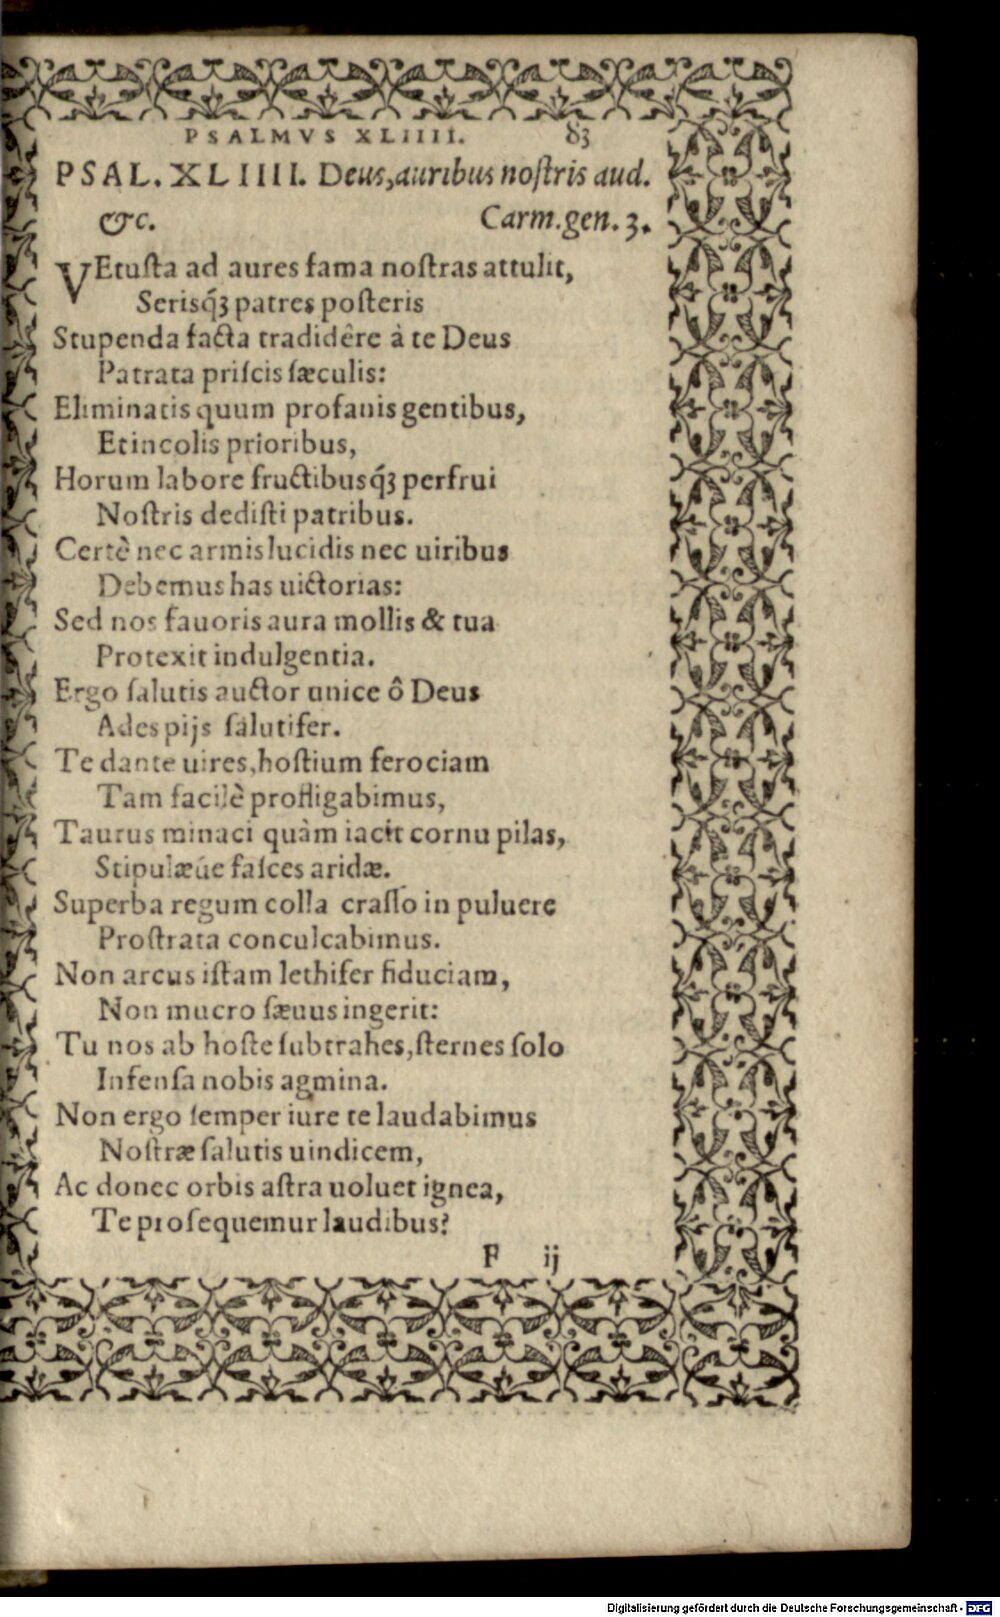 PSALMVS XLIIII. 83
PSAL. XLIIII. Deus, auribus noſtris aud.
&c. Carm. gen. 3.
VEtuſta ad aures fama noſtras attulit,
Serisq́ꝫ patres poſteris
Stupenda facta tradidêre à te Deus
Patrata priſcis ſæculis:
Eliminatis quum profanis gentibus,
Et incolis prioribus,
Horum labore fructibusq́ꝫ perfrui
Noſtris dediſti patribus.
Certè nec armis lucidis nec uiribus
Debemus has uictorias:
Sed nos fauoris aura mollis & tua
Protexit indulgentia.
Ergo ſalutis auctor unice ô Deus
Ades pijs ſalutifer.
Te dante uires, hoſtium ferociam
Tam facilè profligabimus,
Taurus minaci quàm iacit cornu pilas,
Stipulæúe faſces aridæ.
Superba regum colla craſſo in puluere
Proſtrata conculcabimus.
Non arcus iſtam lethifer fiduciam,
Non mucro ſæuus ingerit:
Tu nos ab hoſte ſubtrahes, ſternes ſolo
Infenſa nobis agmina.
Non ergo ſemper iure te laudabimus
Noſtræ ſalutis uindicem,
Ac donec orbis aſtra uoluet ignea,
Te proſequemur laudibus?
F ij
Digitalisierung gefördert durch die Deutsche Forschungsgemeinschaft - DFG